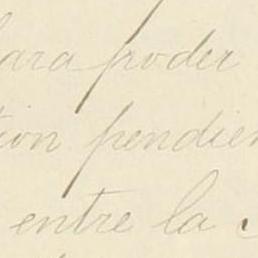 para poder
ion pendien
entre la